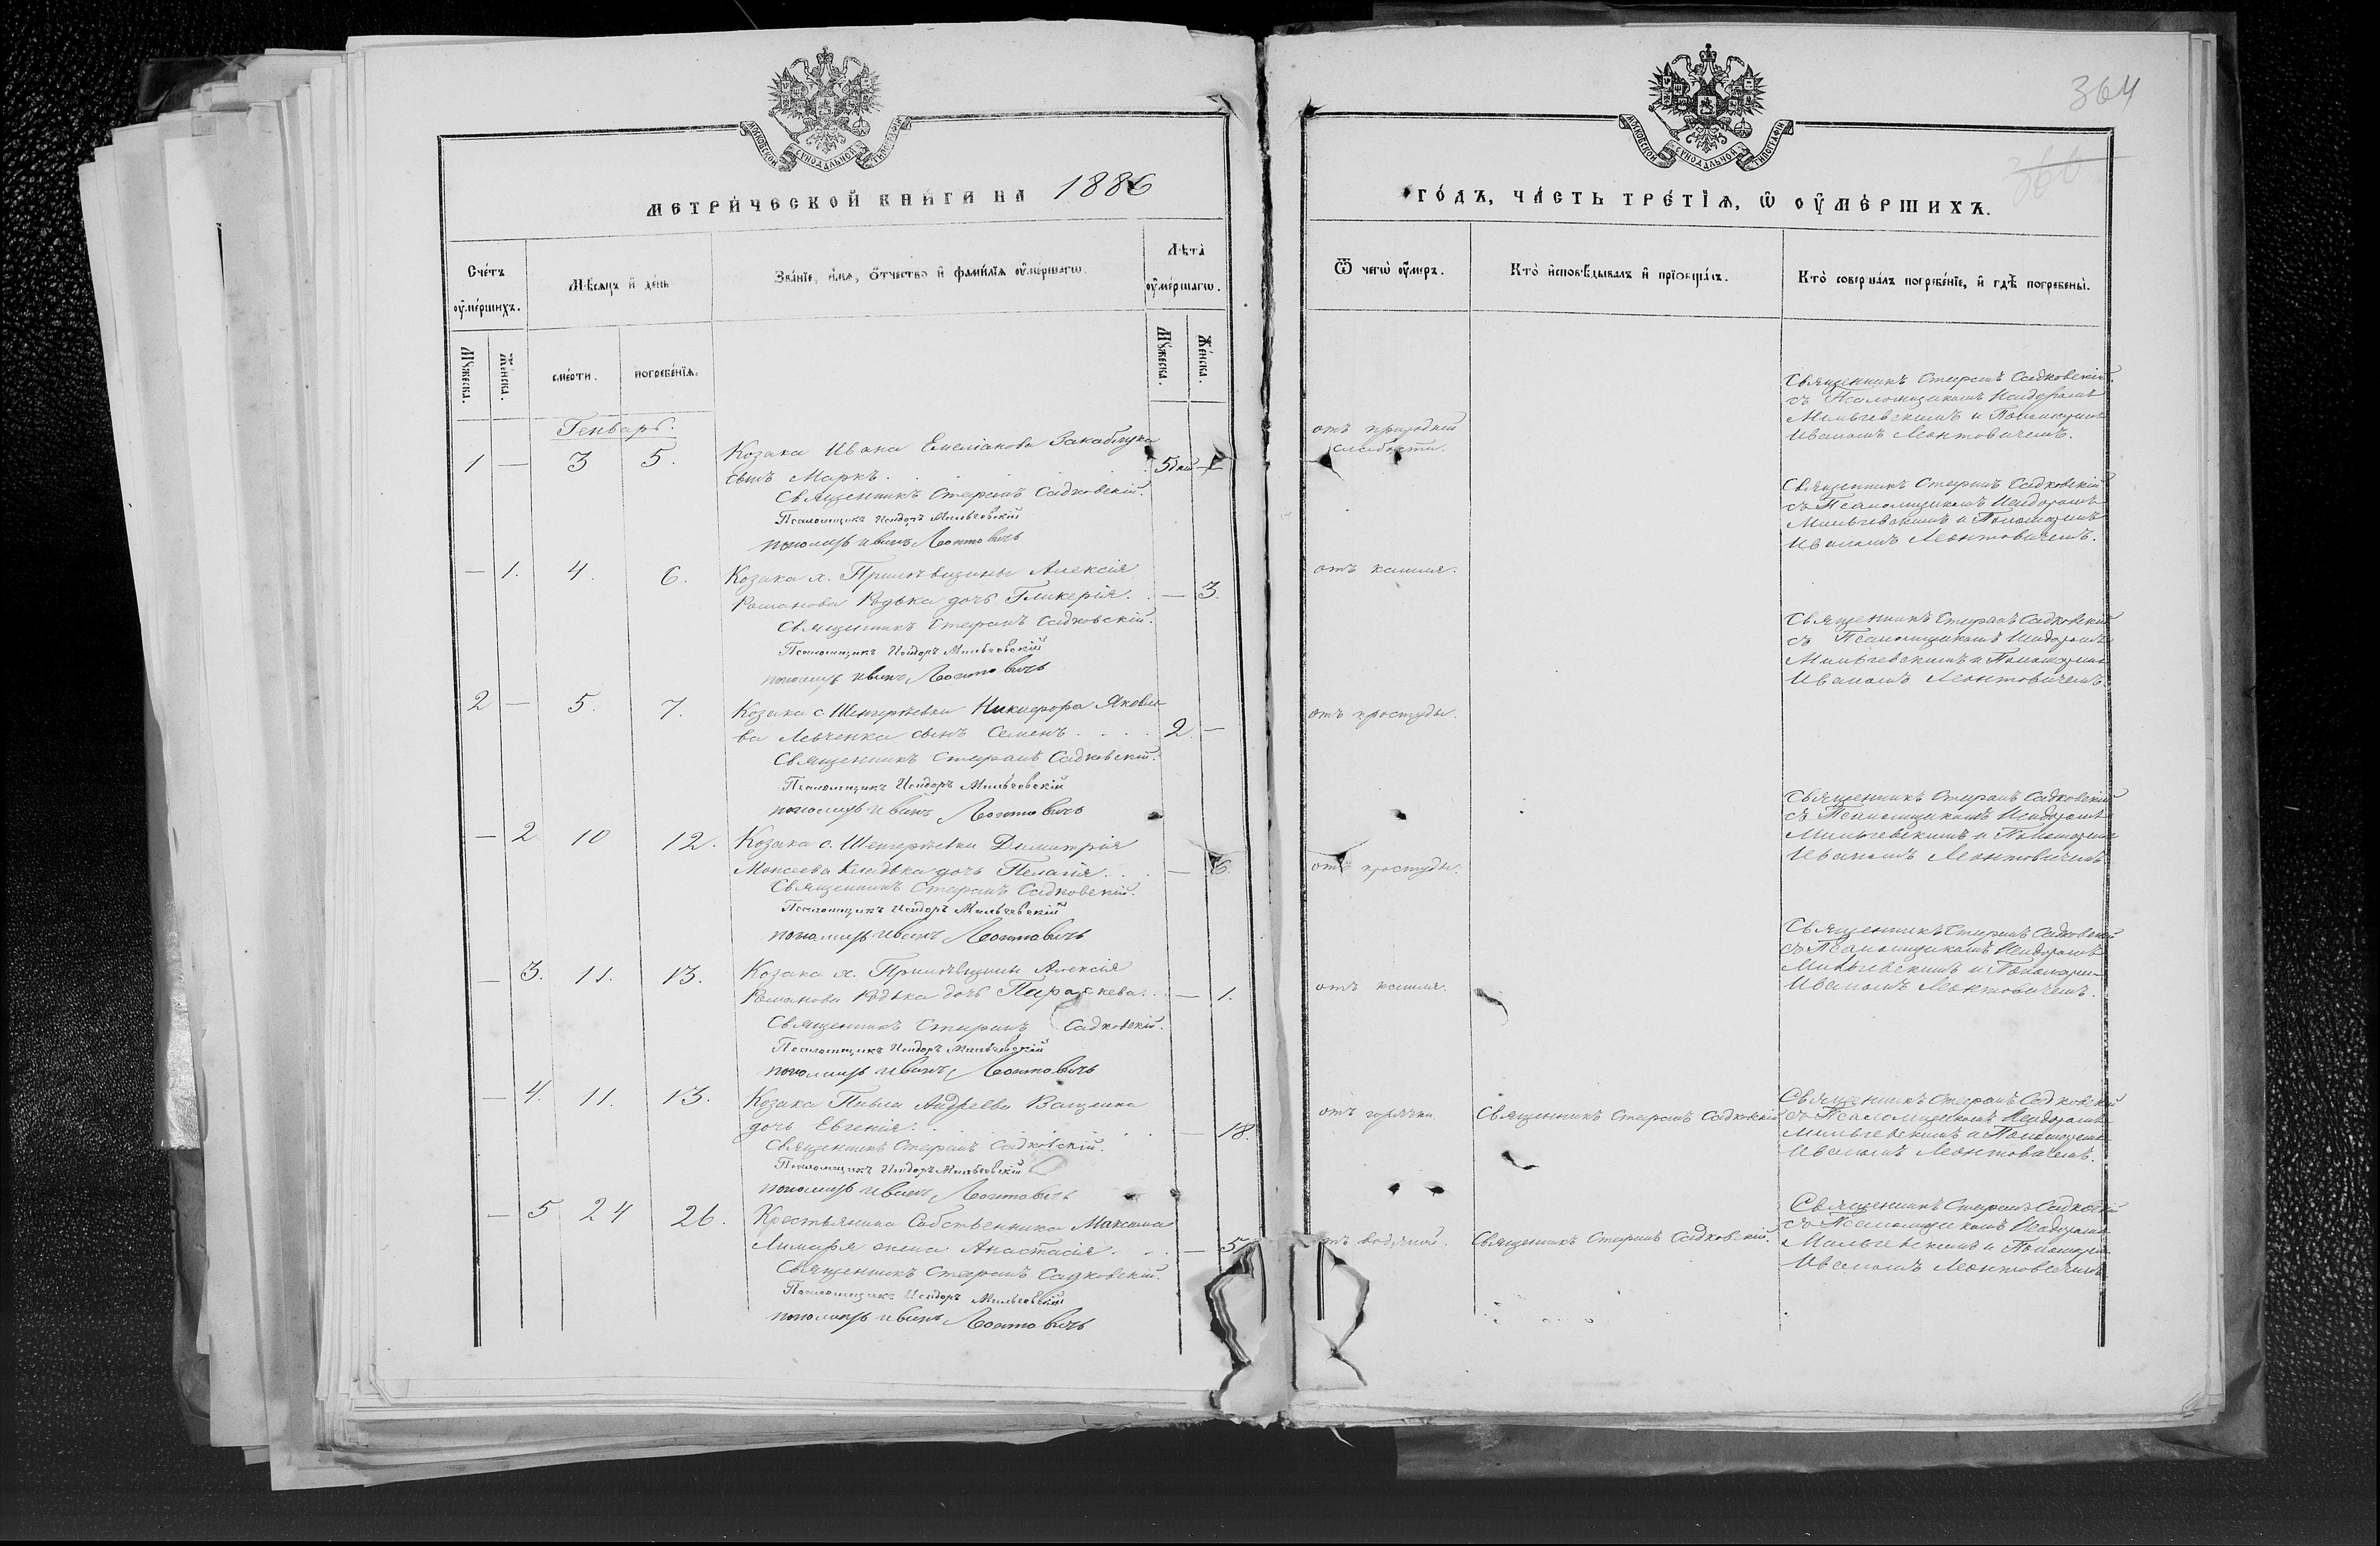 364
366
МОСКОВСКОЙ СѴНОДАЛЬНОЙ ТИПОГРАФІИ
МОСКОВСКОЙ СѴНОДАЛЬНОЙ ТИПОГРАФІИ
МЕТРИ́ЧЕСКОЙ КНИ́ГИ НА 1886
ГО́ДЪ, ЧА́СТЬ ТРЕ́ТІѦ, Ѿ ОУ҆МЕ́РШИХЪ.
Сче́тъ оу҆ме́ршихъ.
Мѣ́сѧцъ и҆ де́нь
Зва́нїе, и҆́мѧ, ѻ҆́тчество и҆ фами́лїѧ оу҆ме́ршагѡ.
Лѣ́та оу҆ме́ршагѡ.
Ѿ чегѡ̀ оу҆́меръ.
Кто̀ и҆сповѣ́дывалъ и҆ прїѡбща́лъ.
Кто̀ соверша́лъ погребе́нїе, и҆ гдѣ̀ погребены̀.
Мꙋ́жеска. Же́нска. сме́рти. погребе́нїѧ. Мꙋ́жеска. Же́нска.
Генварь.
1 — 3 5. Козака Ивана Емеліанова Закаблука
сынъ Маркъ. 5 дней —
Священникъ Стефанъ Садковскій.
Псаломщикъ Исидоръ Мильчевскій
пономарь Иванъ Леонтовичъ
отъ природной
слабости.
Священникъ Стефанъ Садковскій
съ Псаломщикомъ Исидоромъ
Мильчевскимъ и Пономаремъ
Иваномъ Леонтовичемъ.
— 1. 4. 6. Козака х. Алексія
Романова Родька дочь Гликерія. — 3.
Священникъ Стефанъ Садковскій.
Псаломщикъ Исидоръ Мильчевскій
пономарь Иванъ Леонтовичъ
отъ кашля.
Священникъ Стефанъ Садковскій
съ Псаломщикомъ Исидоромъ
Мильчевскимъ и Пономаремъ
Иваномъ Леонтовичемъ.
2 — 5. 7. Козака с. Никифора Яковле-
ва Левченка сынъ Семенъ. 2. —
Священникъ Стефанъ Садковскій.
Псаломщикъ Исидоръ Мильчевскій
пономарь Иванъ Леонтовичъ
отъ простуды.
Священникъ Стефанъ Садковскій
съ Псаломщикомъ Исидоромъ
Мильчевскимъ и Пономаремъ
Иваномъ Леонтовичемъ.
— 2 10 12. Козака с. Димитрія
Моисеева дочь Пелагія. — 6.
Священникъ Стефанъ Садковскій.
Псаломщикъ Исидоръ Мильчевскій
пономарь Иванъ Леонтовичъ
отъ простуды.
Священникъ Стефанъ Садковскій
съ Псаломщикомъ Исидоромъ
Мильчевскимъ и Пономаремъ
Иваномъ Леонтовичемъ
— 3. 11. 13. Козака х. Алексія
Романова Родька дочь Параскева. — 1.
Священникъ Стефанъ Садковскій.
Псаломщикъ Исидоръ Мильчевскій
пономарь Иванъ Леонтовичъ
отъ кашля.
Священникъ Стефанъ Садковскій
съ Псаломщикомъ Исидоромъ
Мильчевскимъ и Пономарем
Иваномъ Леонтовичемъ.
— 4. 11. 13. Козака Павла Андреева Ващенка
дочь Евгенія. — 18.
Священникъ Стефанъ Садковскій.
Псаломщикъ Исидоръ Мильчевскій
пономарь Иванъ Леонтовичъ
отъ горячки
Священникъ Стефанъ Садковскій
Священникъ Стефанъ Садковскій
съ Псаломщикомъ Исидоромъ
Мильчевскимъ и Пономаремъ
Иваномъ Леонтовичемъ.
— 5 24 26. Крестьянина Собственника Максима
Лимаря жена Анастасія. — 5
Священникъ Стефанъ Садковскій.
Псаломщикъ Исидоръ Мильчевскій
пономарь Иванъ Леонтовичъ
отъ водяной.
Священникъ Стефанъ Садковскій.
Священникъ Стефанъ Садковскій
съ Псаломщикомъ Исидоромъ
Мильчевскимъ и Пономарем
Иваномъ Леонтовичемъ